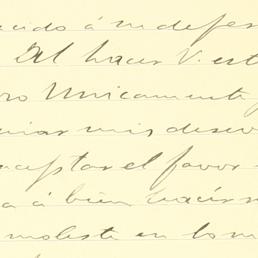 ecido á m defen
Al hacer V. est
ro Unicamente
uiar mis deseo
ceptar el favor
a á bien hacér
moleste en lo m